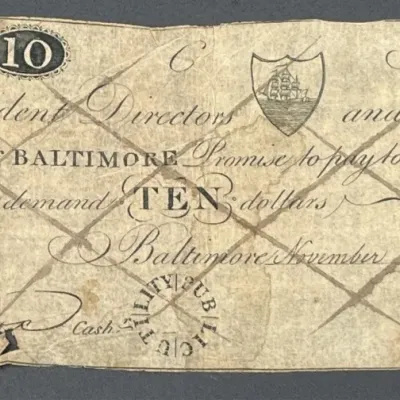 10 C
dent Directors and
BALTIMORE Promise to pay to
demand TEN dollars,
Baltimore November
Cash.r
PUBLIC UTILITY